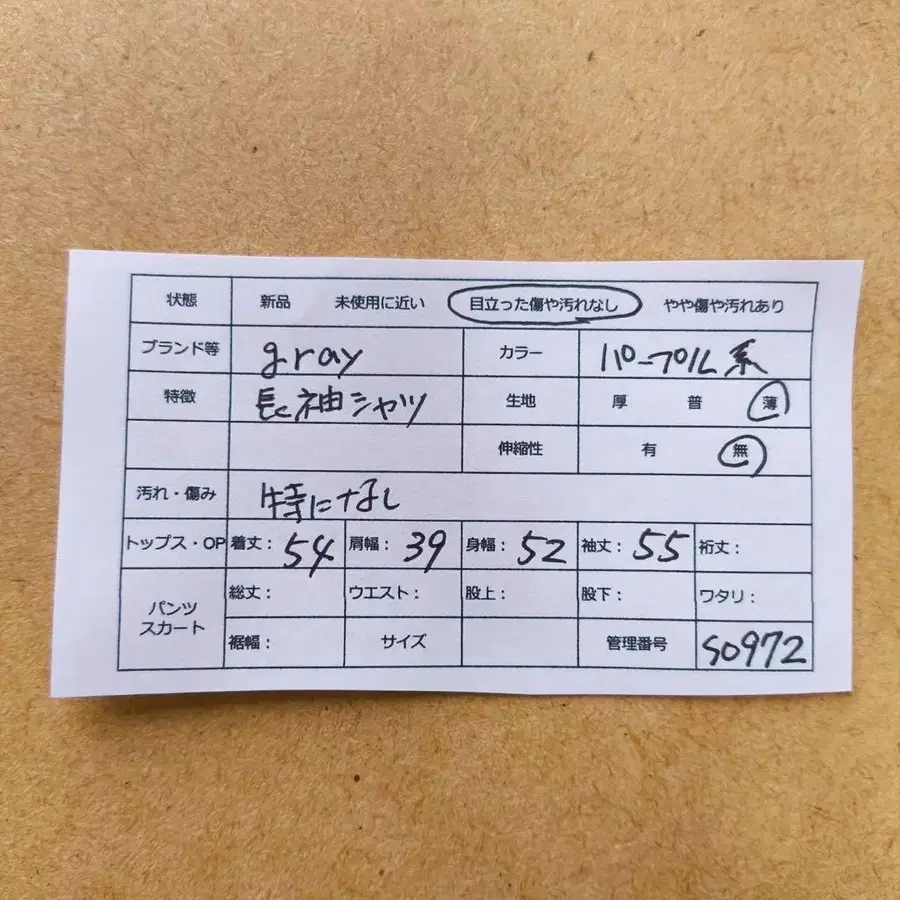 状態 新品 未使用に近い 目立った傷や汚れなし やや傷や汚れあり
ブランド等 gray カラー パープル系
特徴 長袖シャツ 生地 厚 普 薄
伸縮性 有 無
汚れ・傷み 特になし
トップス・OP 着丈： 54 肩幅： 39 身幅： 52 袖丈： 55 裄丈：
パンツ スカート 総丈： ウエスト： 股上： 股下： ワタリ：
裾幅： サイズ 管理番号 S0972